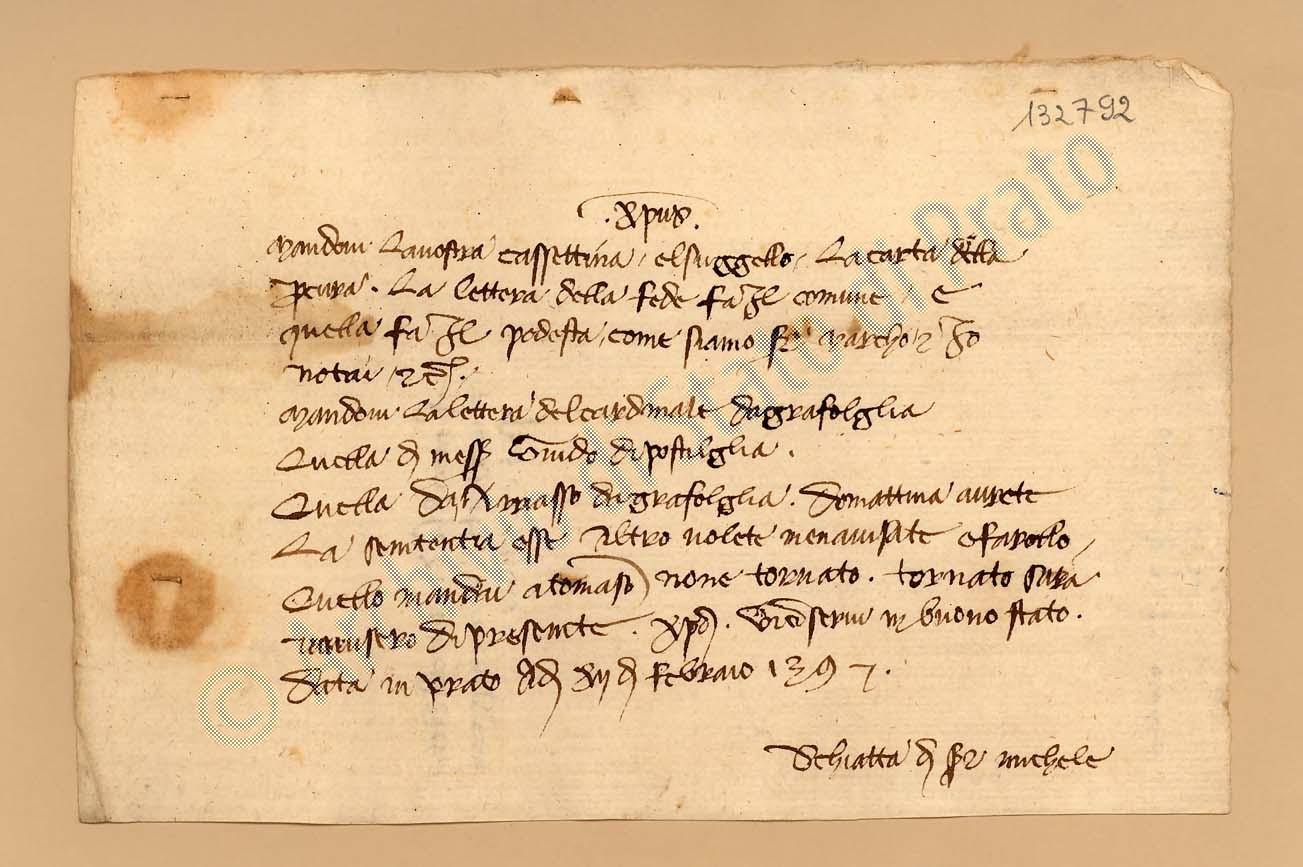 132792
.Xpus.
Mandovi la vostra cassettina, el suggello, la carta della
pcura. La lettera della fede fa Il comune, e
quella fa Il podesta, come siamo s. Marcho z Io
notai, zc.
Mandovi la lettera del cardinale da grafolglia
Quella d mess Guido di postilglia.
Quella da grafolglia. Domattina avrete
La sententia esse altro volete menavisate e farollo,
Quello mandai a tomaso none tornato. tornato sara
di presente. Xpo. vi conservi in buono stato.
Data in prato Ad xij d febraio 1397.
Schiatta d s. michele
© Archivio di Stato di Prato